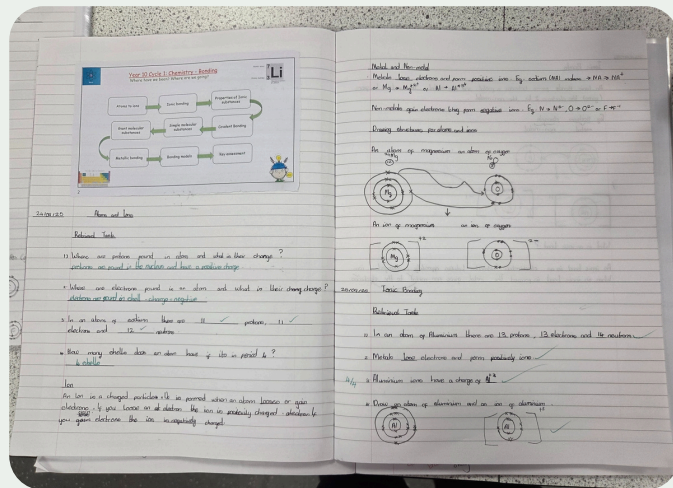 Year 10 Cycle 1: Chemistry - Bonding
Where have we been? Where are we going?
Li
Atoms to ions
Ionic bonding
Properties of ionic substances
Giant molecular substances
Simple molecular substances
Covalent Bonding
Metallic bonding
Bonding models
Key assessment
Atoms and Ions
Retrieval Task
1) Where are protons found in atom and what is their change?
protons are found in the nucleus and have a positive charge
Where are electrons found in an atom and what is their charge?
electrons are found on shell - charge = negative
In an atom of sodium there are 11 protons, 11
electrons and 12 neutrons
How many shells does an atom have if its in period 4?
4 shells
Ion
An ion is a charged particles. It is formed when an atom looses or gain
electrons. If you loose an electron the ion is positively charged
you gain electrons the ion is negatively charged
Metal and Non-metal
Metals lose electrons and form positive ions. Eg. sodium
Non-metals gain electrons they form negative ions. Eg.
Drawing structures for atoms and ions
An atom of magnesium an atom of oxygen
Mg
Mg
O
An ion of magnesium an ion of oxygen
Mg +2
O 2-
Ionic Bonding
Retrieval Task
In an atom of Aluminium there are 13 protons, 13 electrons and 14 neutrons
Metals lose electrons and form positively ions
4/4
Aluminium ions have a charge of
Draw an atom of aluminium and an ion of aluminium
Al
Al